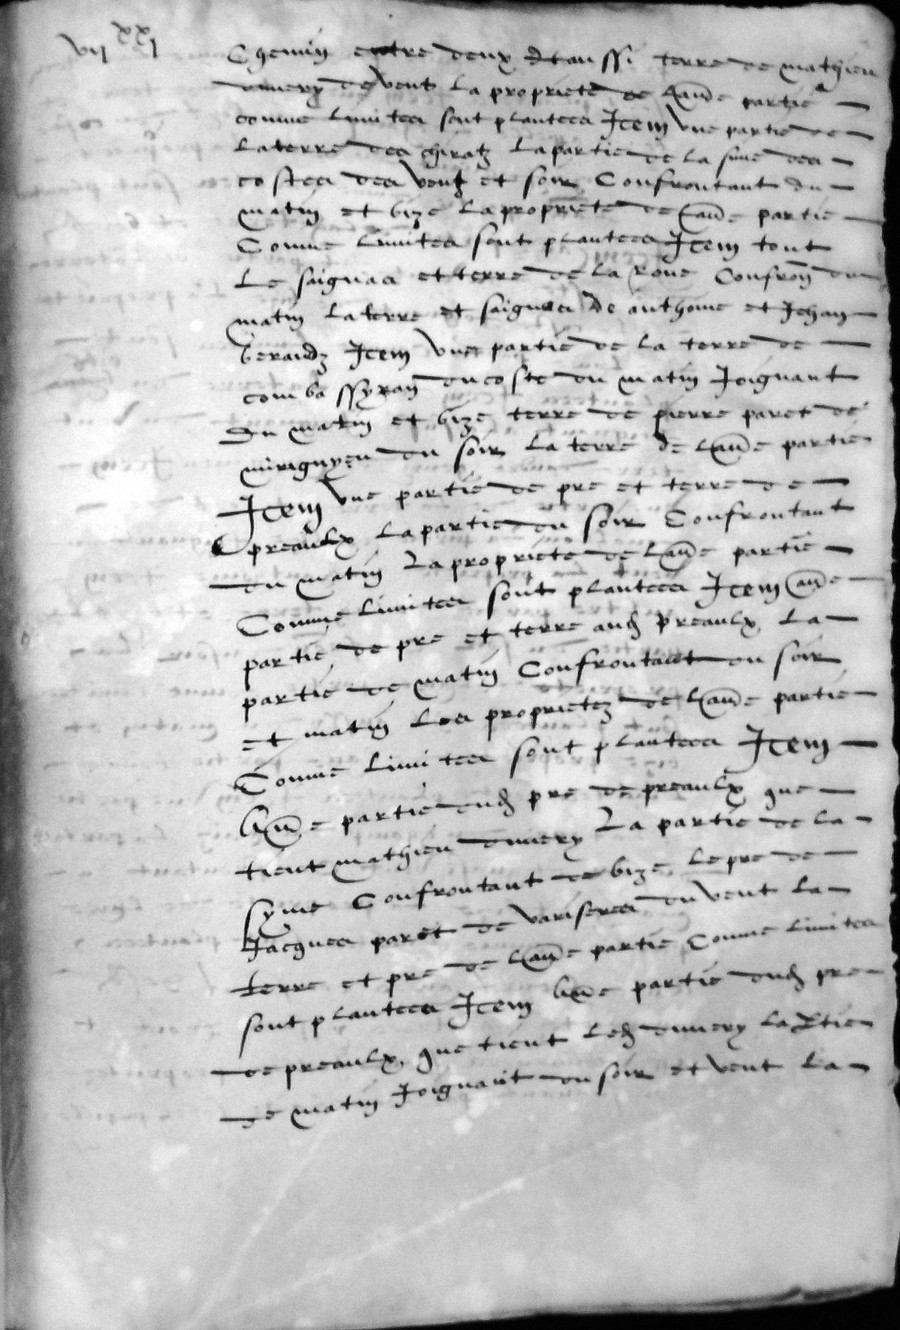 vii xx i
Chemin entre deux Et aussi terre de mathieu
duvery de vent La propriete de Laue partie
comme limites sont plantees Item vne partie de
La terre des giratz La partie de la sime des
costes des vent et soir Confrontant du
matin et bize La propriete de Laue partie
Comme limites sont plantees Item tout
Le saignas et terre de la Roue Confron du
matin La terre et saignes de anthoine et Jehan
beraudz Item vne partie de la terre de
combassyran du coste du matin Joignant
du matin et bize terre de pierre paret de
du soir La terre de Laue partie
Item vne partie de pre et terre de
preaulx La partie du soir Confrontant
du matin La propriete de Laue partie
Comme limites sont plantees Item Laue
partie de pre et terre aud preaulx La
partie de matin Confrontant du soir
et matin Les proprietez de Laue partie
Comme limites sont plantees Item
Laue partie dud pre de preaulx que
tient mathieu duvery La partie de la
syme Confrontant de bize Le pre de
Jacques paret de variseres du vent La
terre et pre de Laue partie Comme limites
sont plantees Item Laue partie dud pre
de preaulx que tient led duvery La ptie
de matin Joignant du soir et vent La